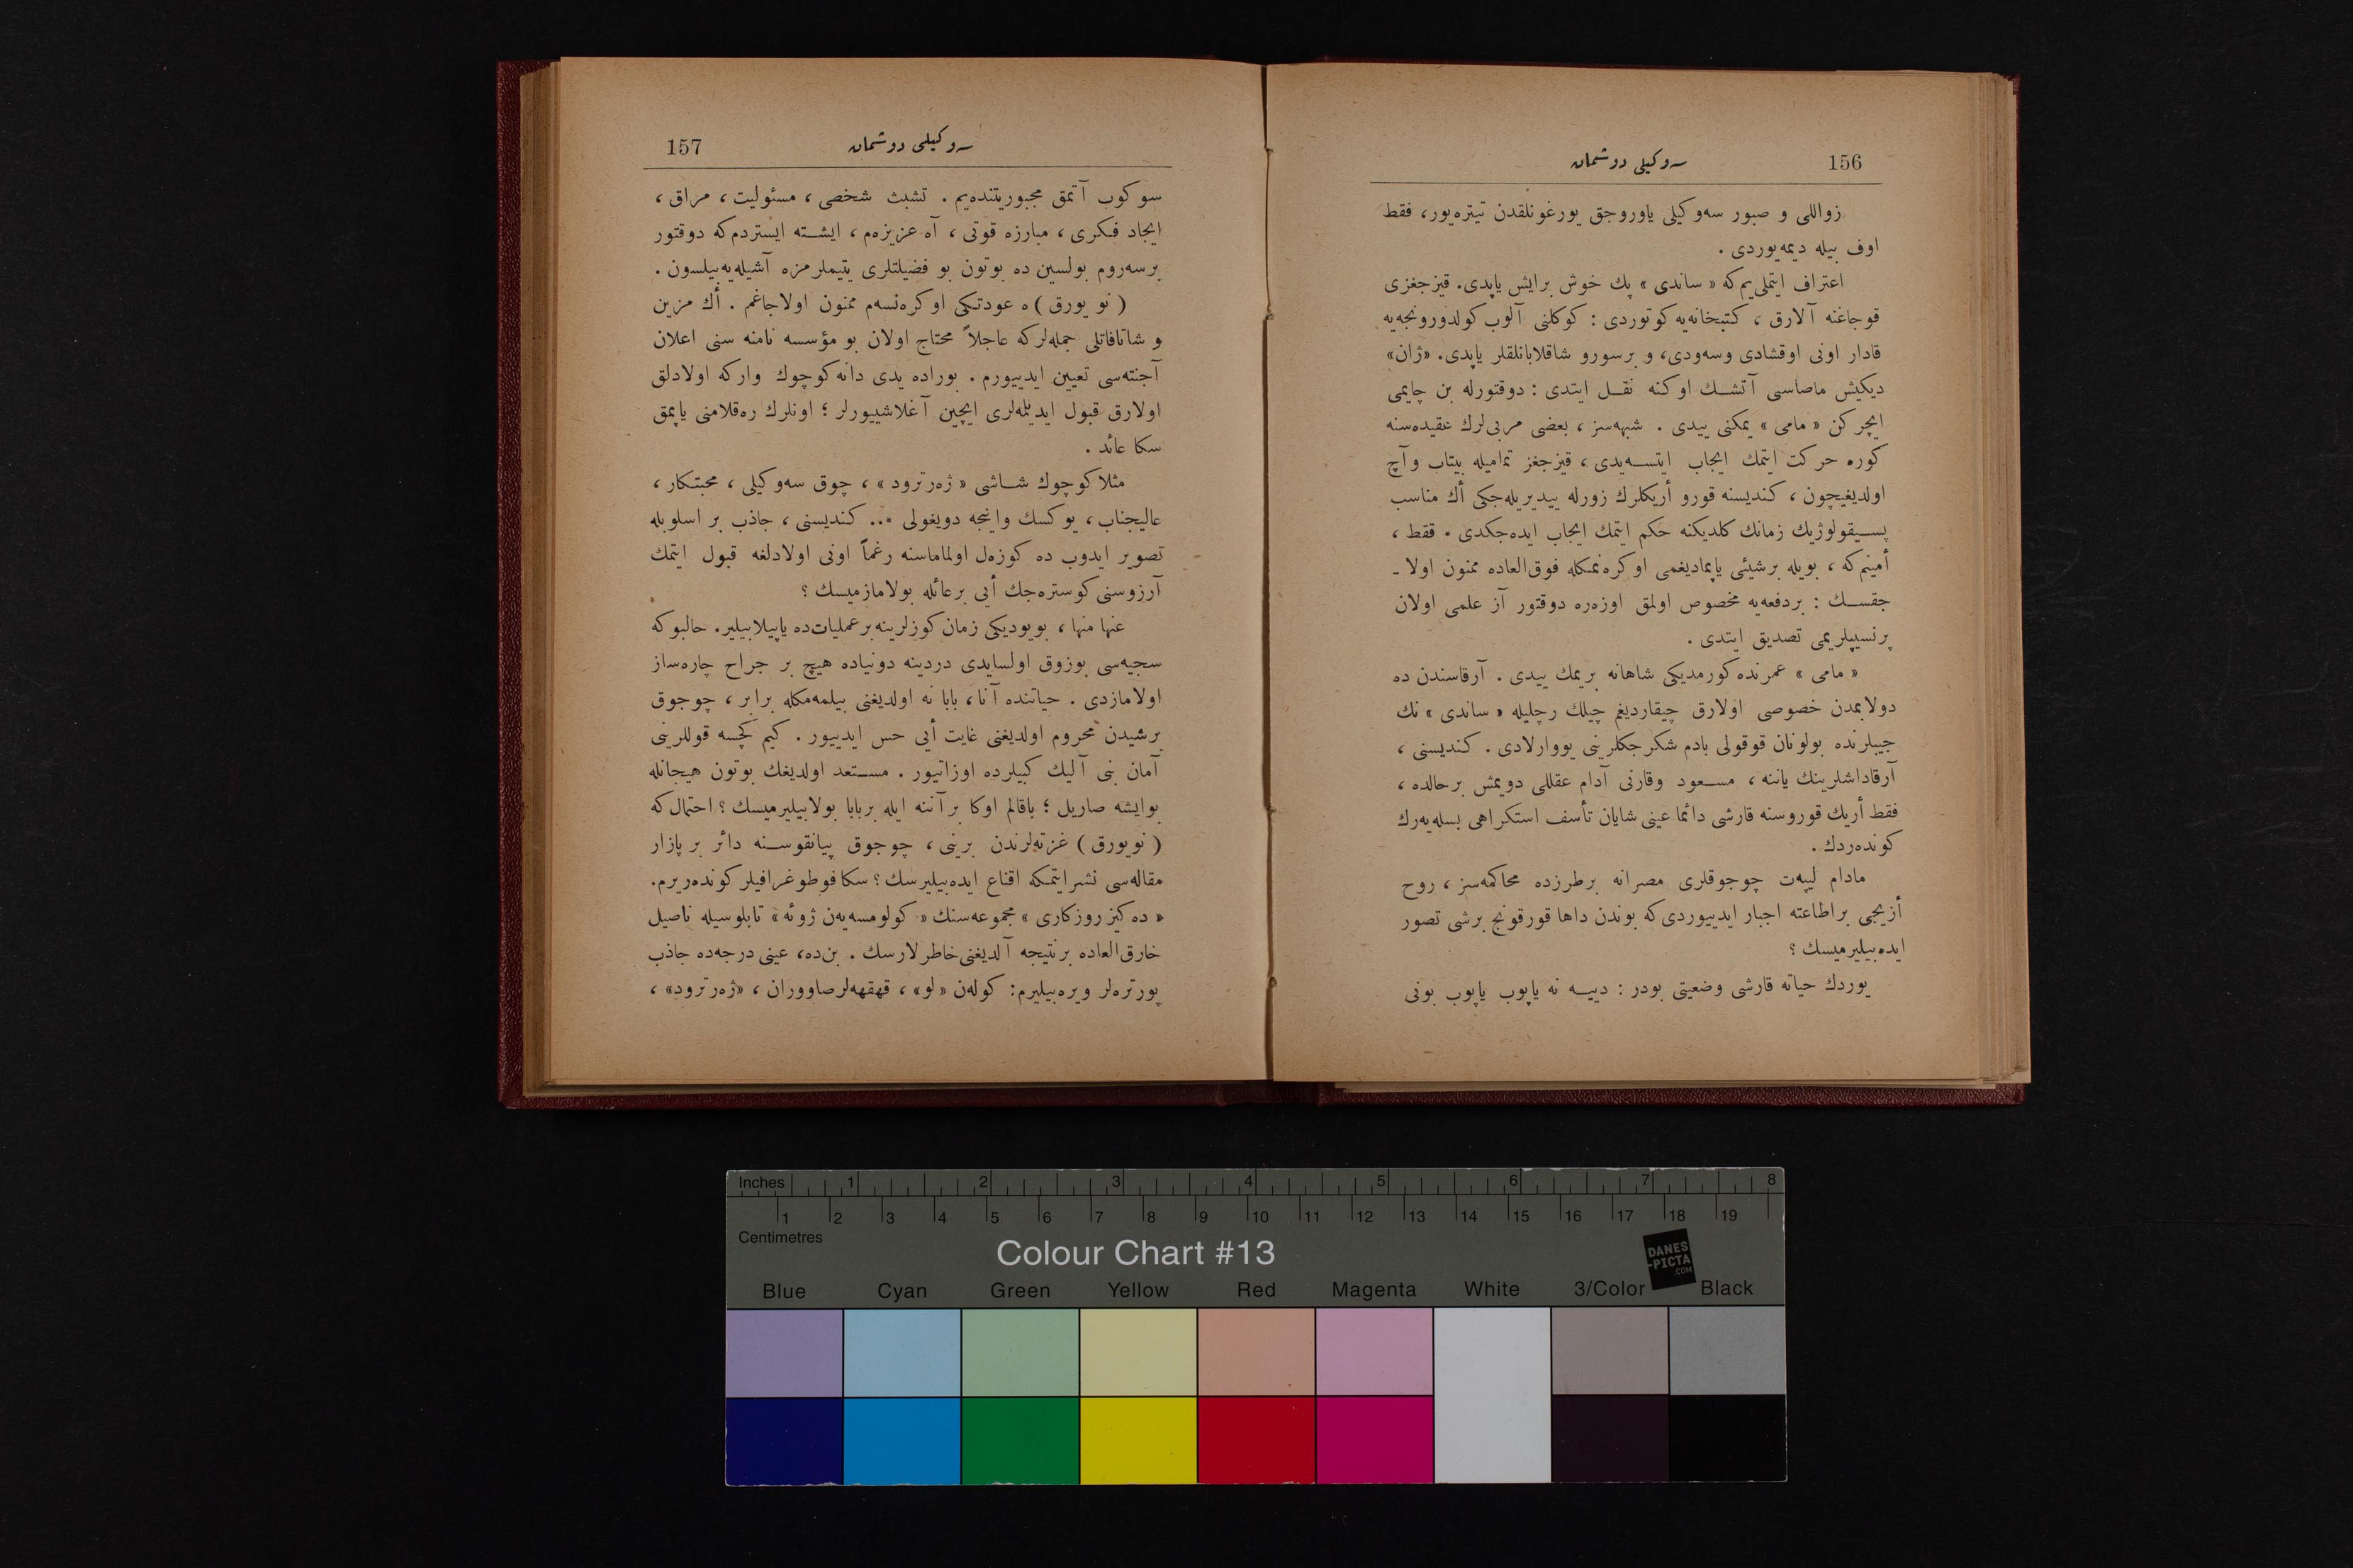 156
سه‌وکیلی دوشمان
زواللی و صبور سه‌وکیلی یاوروجق یورغونلقدن تیتره‌یور، فقط
اوف بیله دیمه‌یوردی .
اعتراف ایتملی‌یم که « ساندی » پك خوش برایش یاپدی. قیزجغزی
قوجاغنه آلارق ، کتبخانه‌یه کوتوردی : کوکلنی آلوب کولدورونجه‌یه
قادار اونی اوقشادی وسه‌ودی، و برسورو شاقلابانلقلر یاپدی. «ژان»
دیکیش ماصاسی آتشك اوکنه نقل ایتدی : دوقتورله بن چایمی
ایچرکن « مامی » یمکنی ییدی . شبهه‌سز ، بعضی مربی‌لرك عقیده‌سنه
کوره حرکت ایتمك ایجاب ایتسه‌یدی ، قیزجغز تمامیله بیتاب وآچ
اولدیغیچون ، کندیسنه قورو أریکلرك زورله ییدیریله‌جکی أك مناسب
پسیقولوژیك زمانك کلدیکنه حکم ایتمك ایجاب ایده‌جکدی . فقط ،
أمینم‌که ، بویله برشیئی یاپمادیغمی اوکره‌نمکله فوق‌العاده ممنون اولا ـ
جقسك : بردفعه‌یه مخصوص اولمق اوزه‌ره دوقتور آز علمی اولان
پرنسیپلریمی تصدیق ایتدی .
« مامی » عمرنده کورمدیکی شاهانه بریمك ییدی . آرقاسندن ده
دولابمدن خصوصی اولارق چیقاردیغم چیلك رچلیله « ساندی » نك
جیبلرنده بولونان قوقولی بادم شکرجکلرینی یووارلادی . کندیسنی ،
آرقاداشلرینك یاننه ، مسعود وقارنی آدام عقللی دویمش برحالده ،
فقط أریك قوروسنه قارشی دائما عینی شایان تأسف استکراهی بسله‌یه‌رك
کونده‌ردك .
مادام لیپه‌ت چوجوقلری مصرانه برطرزده محاکمه‌سز ، روح
أزیجی براطاعته اجبار ایدییوردی که بوندن داها قورقونج برشی تصور
ایده‌بیلیرمیسك ؟
یوردك حیاته قارشی وضعیتی بودر : دییه نه یاپوب یاپوب بونی
157
سه‌وکیلی دوشمان
سوکوب آتمق مجبوریتنده‌یم . تشبث شخصی ، مسئولیت ، مراق ،
ایجاد فکری ، مبارزه قوتی ، آه عزیزه‌م ، ایشته ایستردم‌که دوقتور
برسه‌روم بولسین ده بوتون بو فضیلتلری یتیملرمزه آشیله‌یه‌بیلسون .
( نو یورق ) ه عودتکی اوکره‌نسه‌م ممنون اولاجاغم . أك مزین
و شاتافاتلی جمله‌لرکه عاجلاً محتاج اولان بو مؤسسه نامنه سنی اعلان
آجنته‌سی تعیین ایدییورم . بوراده یدی دانه کوچوك وارکه اولادلق
اولارق قبول ایدیلمه‌لری ایچین آغلاشییورلر ؛ اونلرك ره‌قلامنی یاپمق
سکا عائد .
مثلا کوچوك شاشی « ژه‌رترود » ، چوق سه‌وکیلی ، محبتکار ،
عالیجناب ، یوکسك واینجه دویغولی ... کندیسنی ، جاذب بر اسلوبله
تصویر ایدوب ده کوزه‌ل اولماماسنه رغماً اونی اولادلغه قبول ایتمك
آرزوسنی کوستره‌جك أیی برعائله بولامازمیسك ؟
عنها منها ، بویودیکی زمان کوزلرینه برعملیات‌ده یاپیلابیلیر. حالبوکه
سجیه‌سی بوزوق اولسایدی دردینه دونیاده هیچ بر جراح چاره‌ساز
اولامازدی . حیاتنده آنا، بابا نه اولدیغنی بیلمه‌مکله برابر ، چوجوق
برشیدن محروم اولدیغنی غایت أیی حس ایدییور . کیم کچسه قوللرینی
آمان بنی آلیك کبیلرده اوزاتیور . مستعد اولدیغك بوتون هیجانله
بوایشه صاریل ؛ باقالم اوکا برآننه ایله بربابا بولابیلیرمیسك ؟ احتمال که
( نویورق ) غزته‌لرندن برینی ، چوجوق پیانقوسنه دائر بر پازار
مقاله‌سی نشرایتمکه اقناع ایده‌بیلیرسك ؟ سکا فوطوغرافیلر کونده‌ریرم.
« ده‌کیز روزکاری » مجموعه‌سنك « کولومسه‌یه‌ن ژوئه » تابلوسیله ناصیل
خارق‌العاده برنتیجه آلدیغنی خاطرلارسك . بن‌ده، عینی درجه‌ده جاذب
پورتره‌لر ویره‌بیلیرم: کوله‌ن «لو» ، قهقهه‌لرصاووران ، «ژه‌رترود» ،
Inches 1 2 3 4 5 6 7 8
1 2 3 4 5 6 7 8 9 10 11 12 13 14 15 16 17 18 19
Centimetres
Colour Chart #13
DANES
-PICTA
.COM
Blue Cyan Green Yellow Red Magenta White 3/Color Black